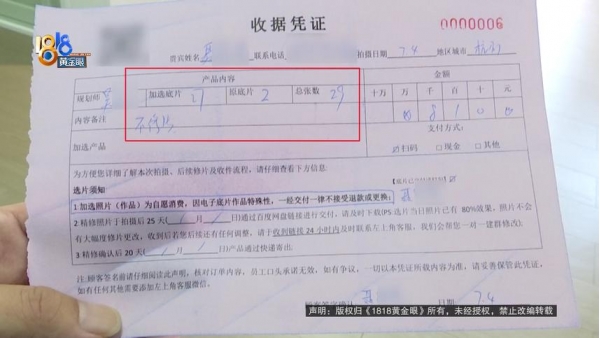 1818
黄金眼
收据凭证
0000006
贵宾姓名
联系电话
拍摄日期 7.4
地区城市 杭州
产品内容
金额
规划师
加选底片 27
原底片 2
总张数 29
十万 万 千 百 十 元
内容备注
支付方式:
加选产品
扫码 □现金 □其他
为方便您详细了解本次拍摄、后接修片及收件流程,请仔细查看下方信息
选片须知
1 加选照片(作品)为自愿消费,因电子底片作品特殊性,一经交付一律不接受退款或更换;
2 精修照片于拍摄后25天( / 月 / 日)通过百度网盘链接进行交付,请及时下载(PS选片当日照片已有80%效果,照片不会
有大幅度修片更改,收到后若您后接还有任何调整,请于收到链接24小时内及时联系左上角客服,我们会帮您一对一建群修改).
3 精修确认后20天( / 月 / 日)产品通过快递寄出.
注:顾客签名前请仔细阅读此声明,核对订单内容,员工口头承诺无效,如有争议,一切以本凭证所载内容为准,请妥善保管此凭证,
如有任何其他需要添加左上角客服微信.
日期: 7.4
声明:版权归《1818黄金眼》所有,未经授权,禁止改编转载